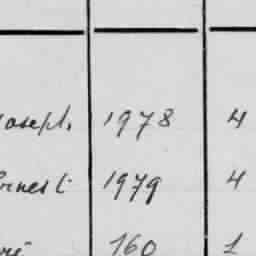 Joseph 1978 4
Ernest 1979 4
160 1